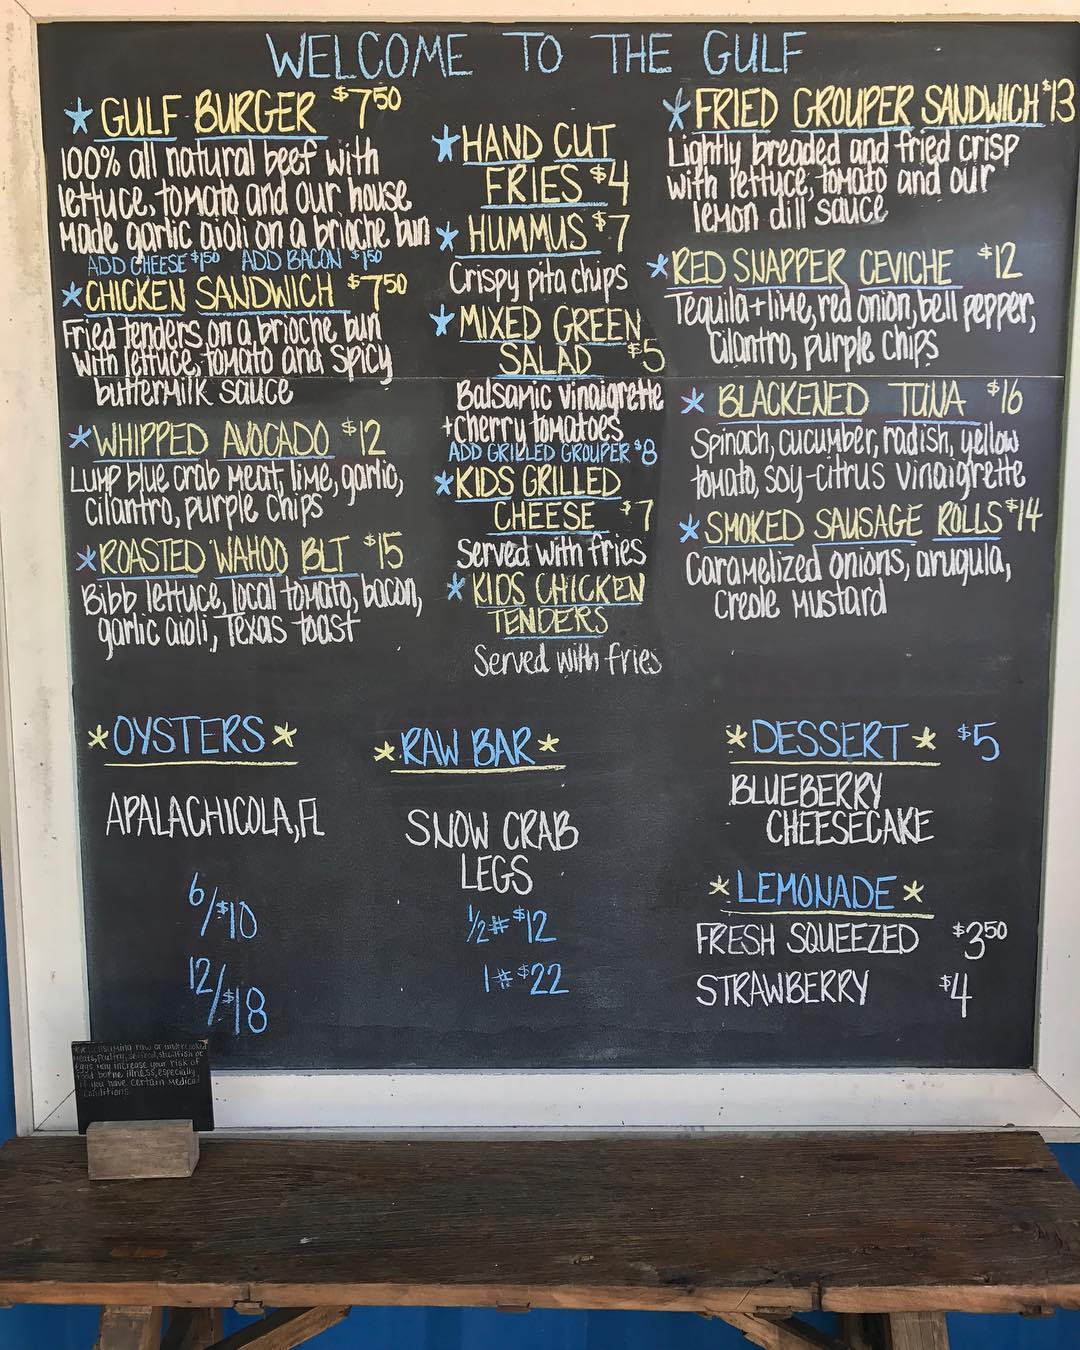 WELCOME TO THE GULF
* GULF BURGER $7.50
100% all natural beef with
lettuce, tomato and our house
made garlic aioli on a brioche bun
ADD CHEESE $1.50 ADD BACON $1.50
* CHICKEN SANDWICH $7.50
Fried tenders on a brioche bun
with lettuce, tomato and spicy
buttermilk sauce
* WHIPPED AVOCADO $12
Lump blue crab meat, lime, garlic,
cilantro, purple chips
* ROASTED WAHOO BLT $15
Bibb lettuce, local tomato, bacon,
garlic aioli, Texas toast
* HAND CUT
FRIES $4
* HUMMUS $7
Crispy pita chips
* MIXED GREEN
SALAD $5
Balsamic vinaigrette
+cherry tomatoes
ADD GRILLED GROUPER $8
* KIDS GRILLED
CHEESE $7
Served with fries
* KIDS CHICKEN
TENDERS
Served with fries
* FRIED GROUPER SANDWICH $13
Lightly breaded and fried crisp
with lettuce, tomato and our
lemon dill sauce
* RED SNAPPER CEVICHE $12
Tequila+lime, red onion, bell pepper,
cilantro, purple chips
* BLACKENED TUNA $16
Spinach, cucumber, radish, yellow
tomato, soy-citrus vinaigrette
* SMOKED SAUSAGE ROLLS $14
Caramelized onions, arugula,
creole mustard
* OYSTERS *
APALACHICOLA, FL
6/$10
12/$18
* RAW BAR *
SNOW CRAB
LEGS
1/2# $12
1# $22
* DESSERT * $5
BLUEBERRY
CHEESECAKE
* LEMONADE *
FRESH SQUEEZED $3.50
STRAWBERRY $4
consuming raw or undercooked
meats, poultry, seafood, shellfish or
eggs may increase your risk of
food borne illness, especially
if you have certain medical
conditions.